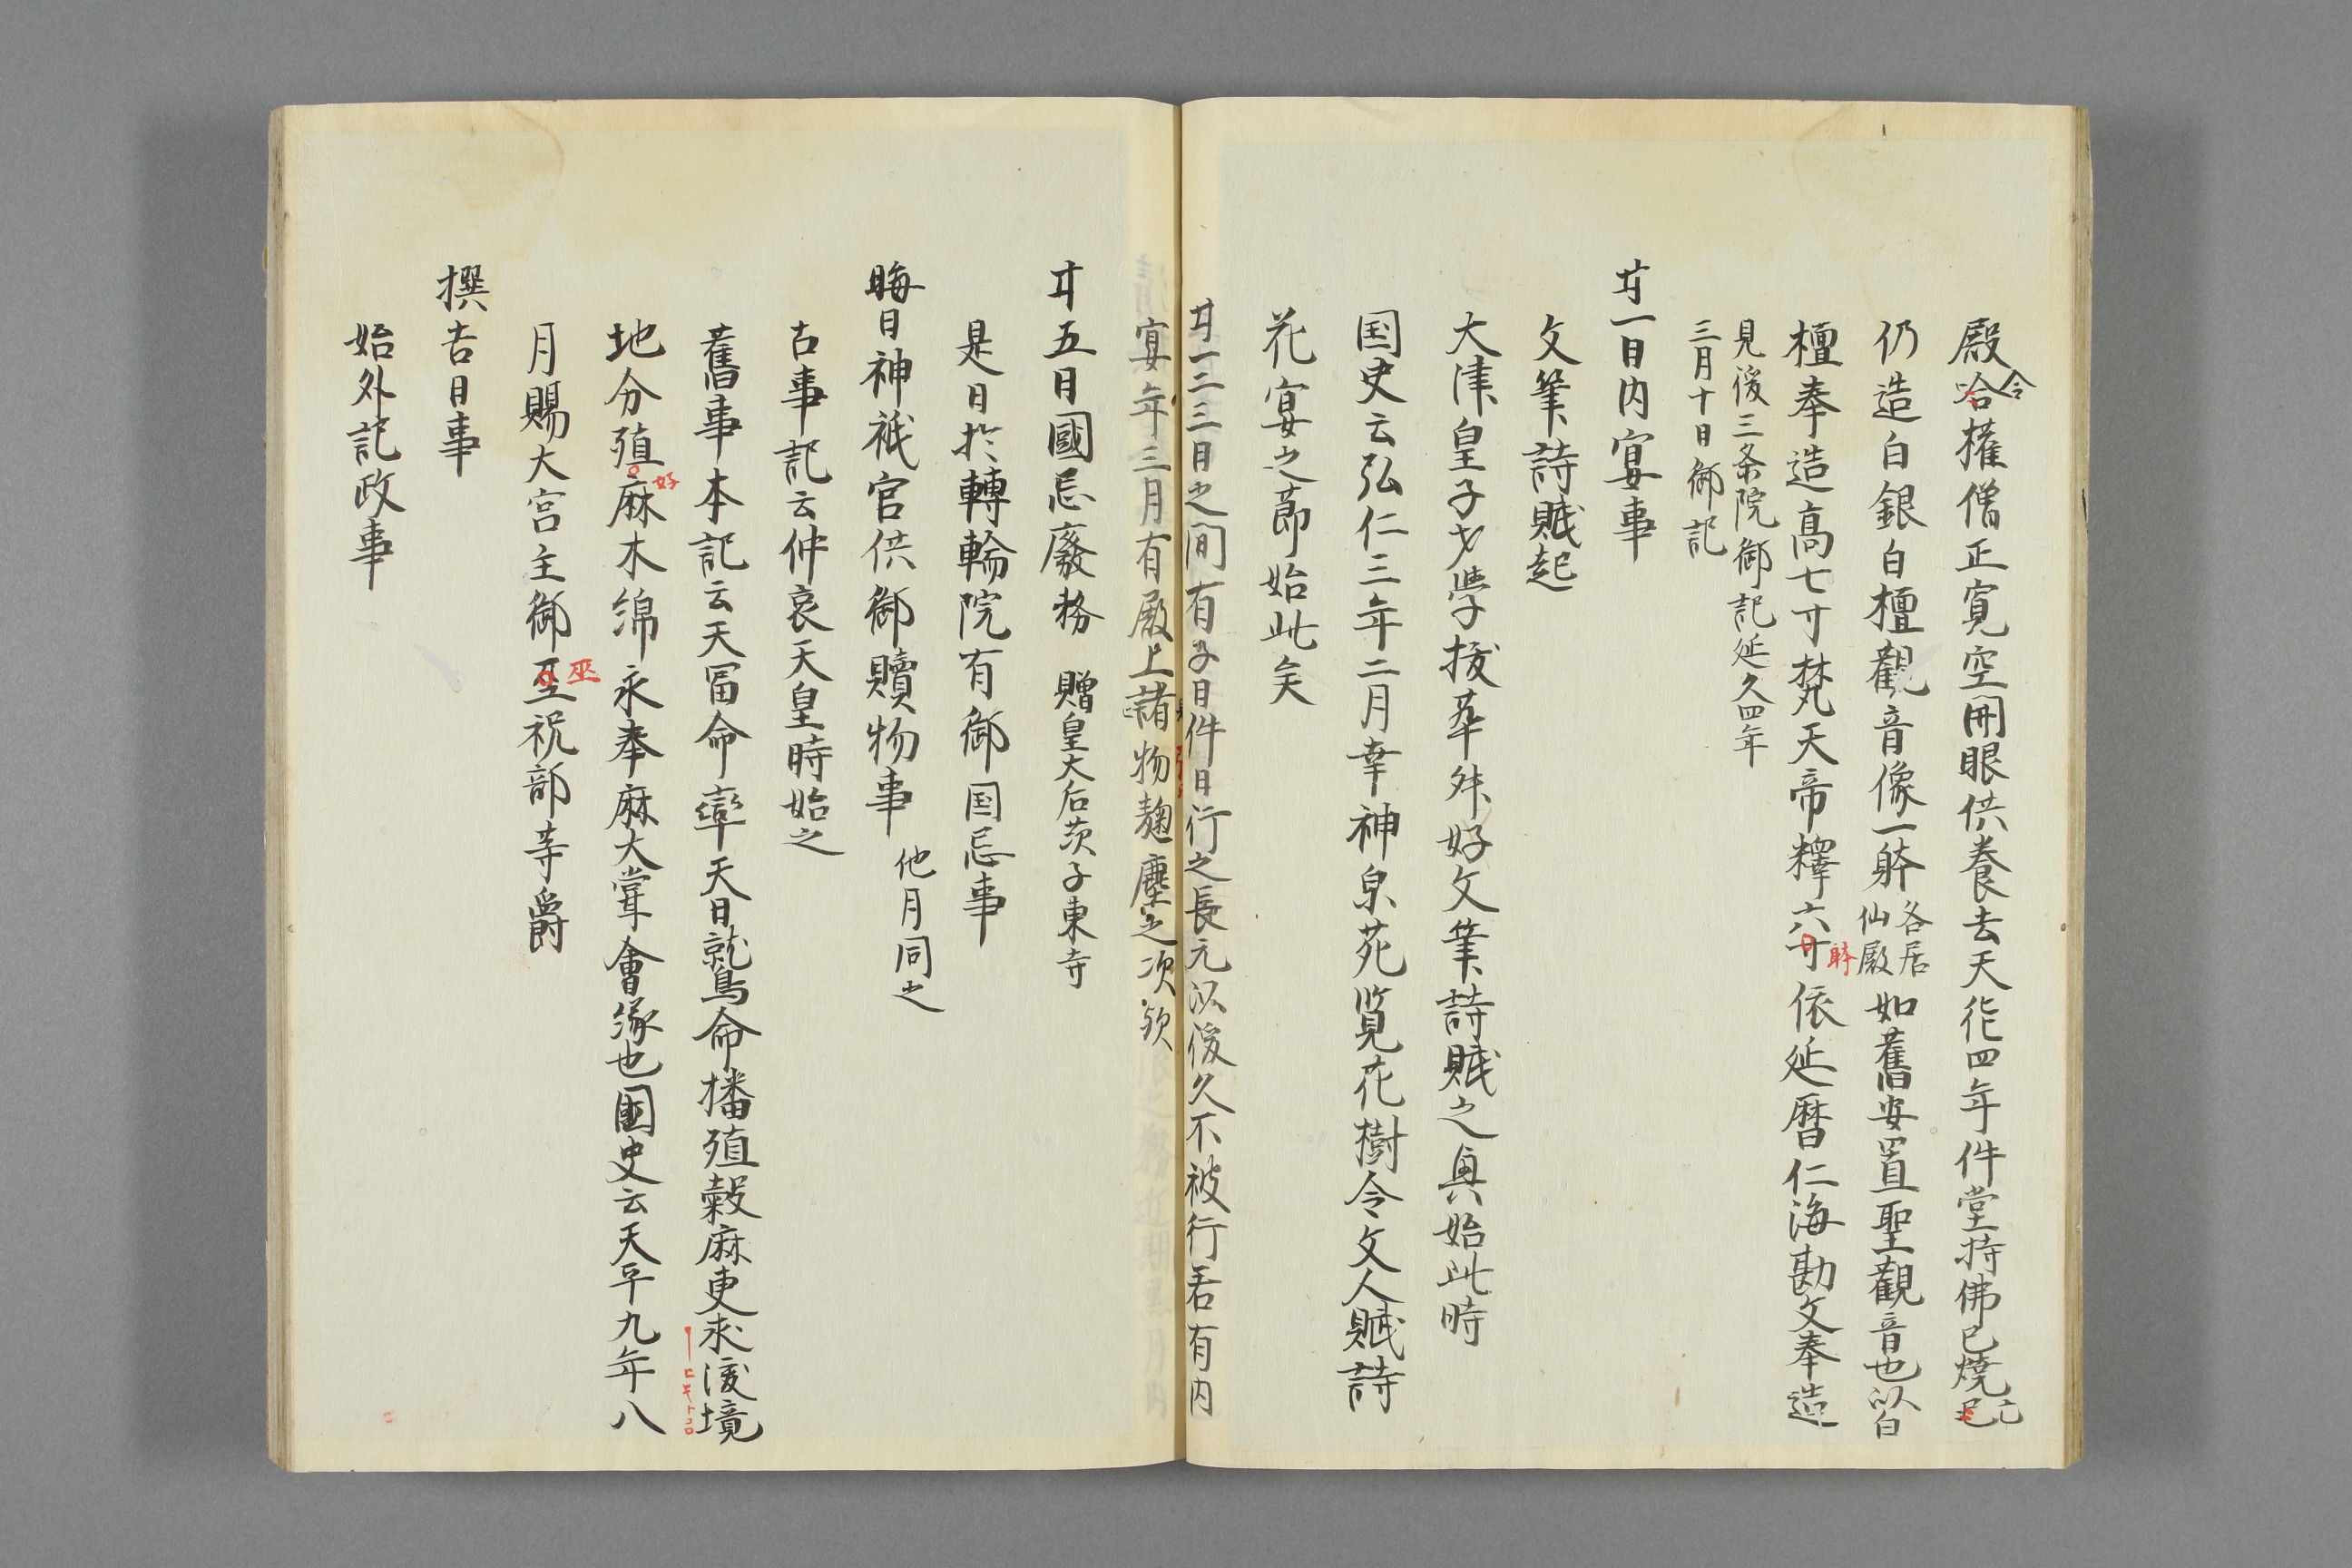 殿哈令権僧正寛空開眼供養去天徳四年件堂持佛已焼已亡
仍造白銀白檀觀音像一躰各居仙殿如舊安置聖觀音也以白
檀奉造高七寸梵天帝釋六寸躰依延暦仁海勘文奉造
見後三条院御記延久四年
三月十日御記
廿一日内宴事
文筆詩賦起
大津皇子才学抜萃殊好文筆詩賦之興始此時
国史云弘仁三年二月幸神泉苑覧花樹令文人賦詩
花宴之莭始此矣
廿一二三日之間有子日件日行之長元以後久不被行若有内
宴年三月有殿上諸物麹塵之次欤
廿五日國忌廢務 贈皇大后茨子東寺
是日於轉輪院有御国忌事
晦日神祇官供御贖物事 他月同之
古事記云仲哀天皇時始之
舊事本記云天冨命率天日鷲命播殖穀麻更求後境
ヒキトコロ
地分殖好麻木綿永奉麻大甞會縁也國史云天平九年八
月賜大宮主御至巫祝部等爵
撰吉日事
始外記政事